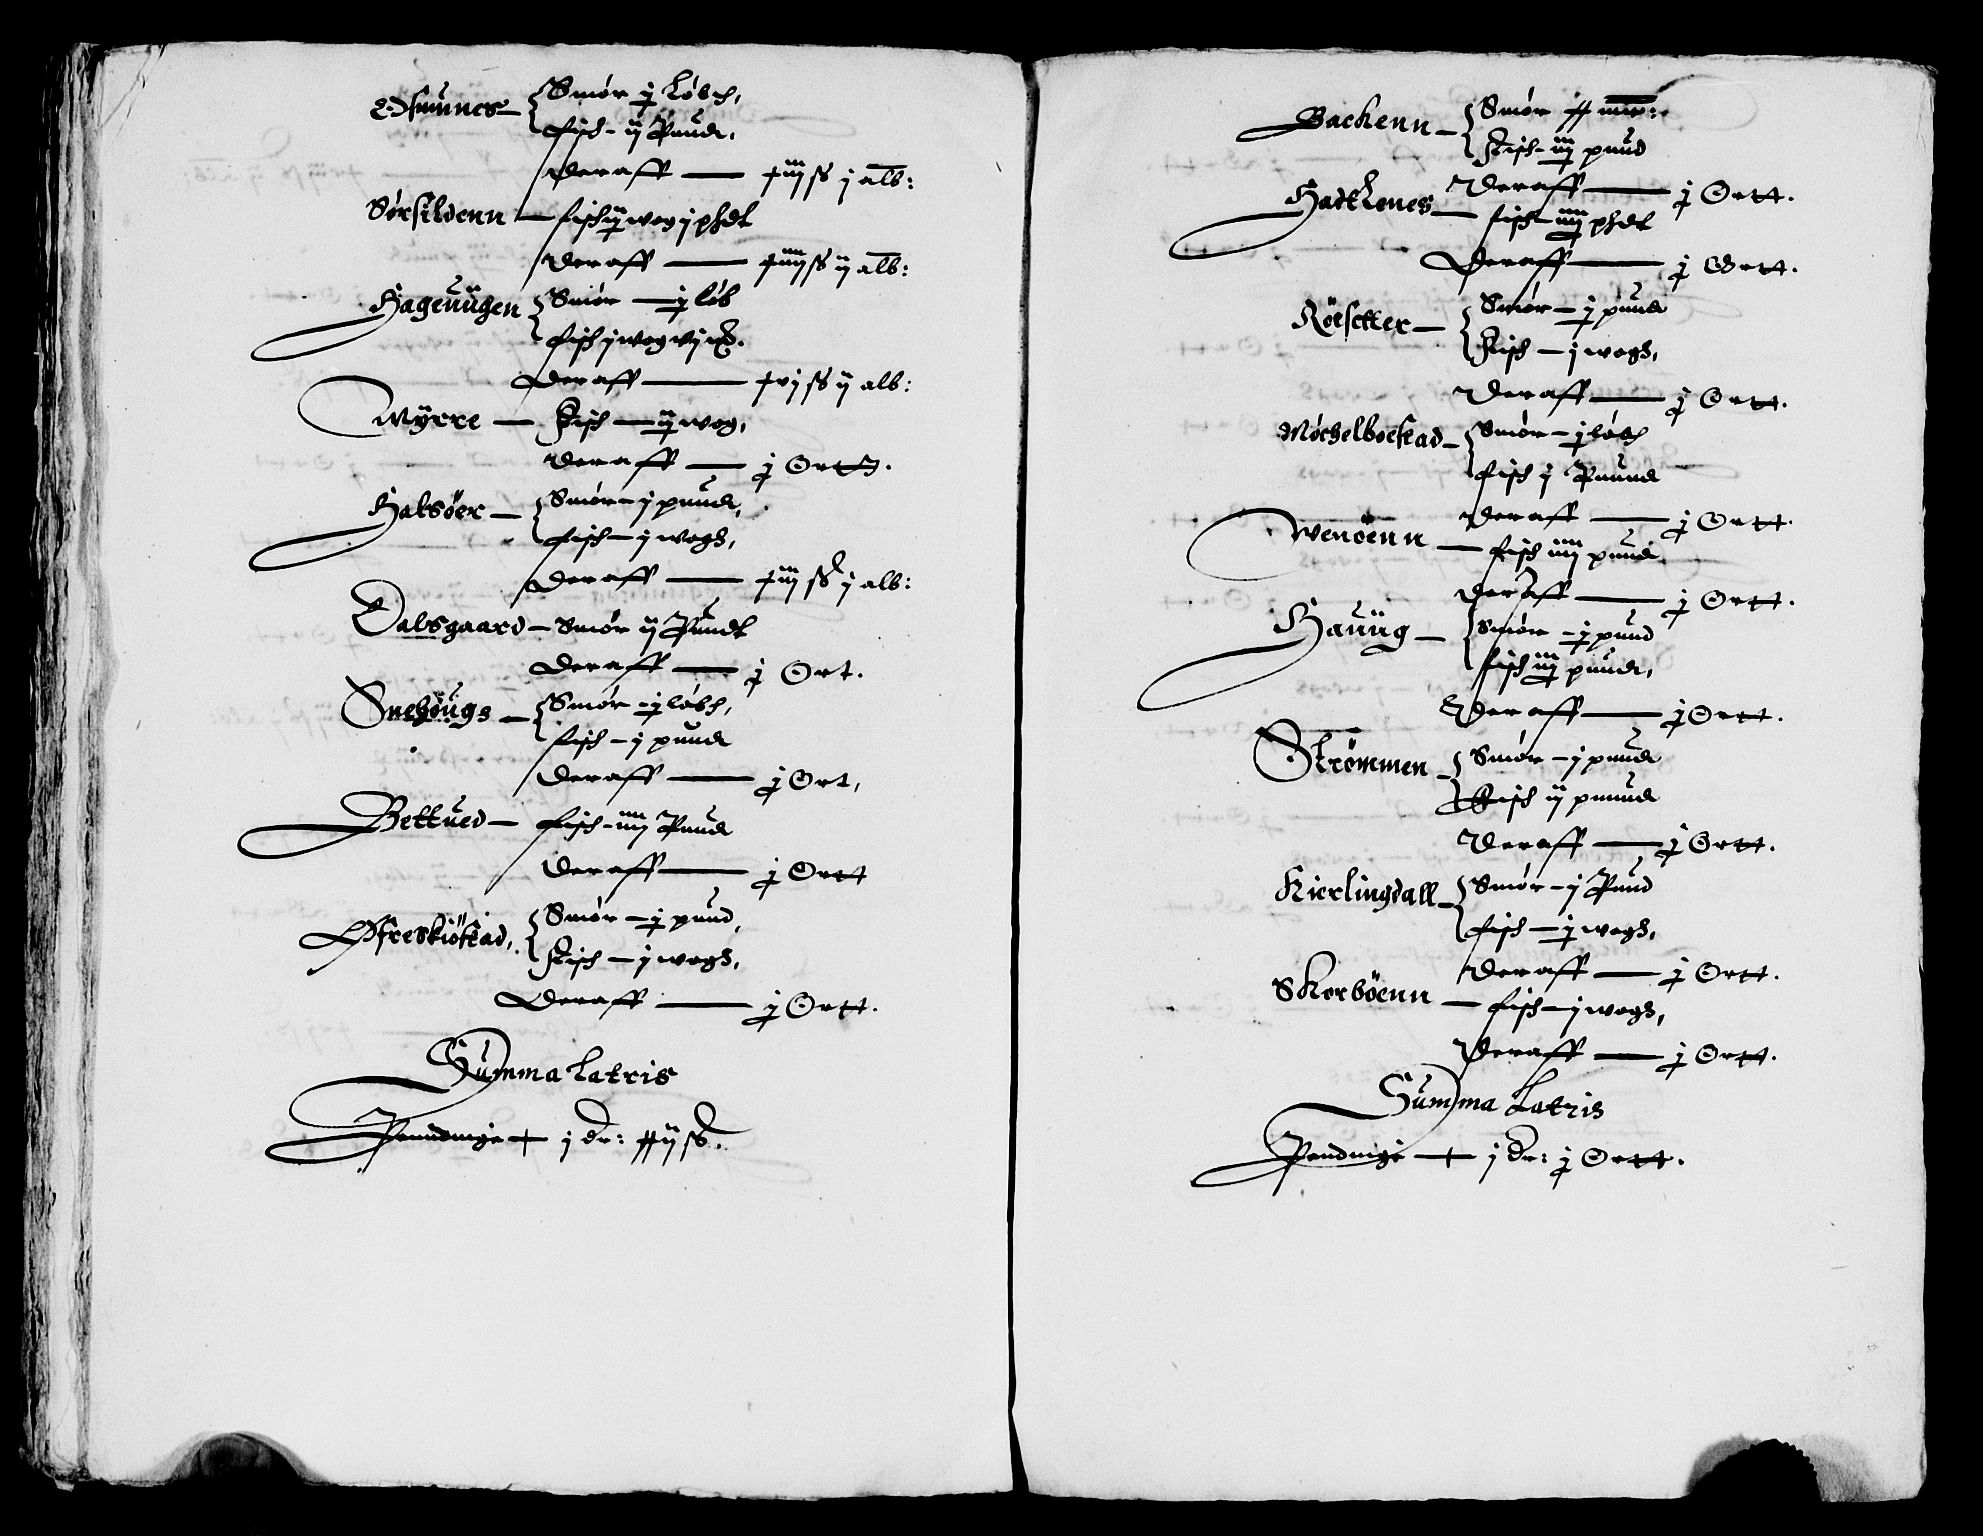 Edsmines — Smór j̶ Lóbch,
fisch - ij Pund,
deraff — j̶ iij ß j alb:
Sórsildenn — fisch ij wog j phdt
deraff — j̶ iiij ß ij alb:
Hageuügen Smór — j̶ lób
fisch j wog vj
Deraff — j̶ vj ß ij alb:
Wÿrre — Fisch — ij wog,
deraff — j Ortt.
Halsöer — Smór - j pund,
fisch - j wogh,
deraff — j̶ iij ß j alb:
Dalsgaard — Smór ij Pundt
deraff — j Ort.
Snehöugs — Smór - j̶ lóbch,
fisch - j pund
deraff — j Ort,
Bettued — fisch - iiij Pund
deraff — j Ortt
Smór — j̶ pund,
Fisch — j wogh,
Deraff — j Ortt.
Summa Latris
Penndinge — j dr: ij ß.
Backenn — Smór mrr:
Fisch - iij pund
Deraff — j Ortt.
fisch - iiij phdt
Deraff — j Ortt.
Röesetter — Smór — j̶ pund
Fisch — j wogh,
Deraff — j Ortt.
Móchelboestad — Smór - j̶ lóbch
fisch j Pund
deraff — j Ortt.
Wenöenn — fisch iiij pund
deraff — j Ortt.
Hauüg — Smór - j̶ pund
fisch iij pund,
Deraff — j Ortt.
Strömmen — Smór - j pund
Fisch ij pund
Deraff — j Ortt.
Kierlingdall — Smór - j Pund
fisch — j̶ wogh,
Deraff — j Ortt.
Skorböenn — fisch - j wogh,
Deraff — j Ortt.
Summa Latris
Pendinge — j dr: j Ortt.